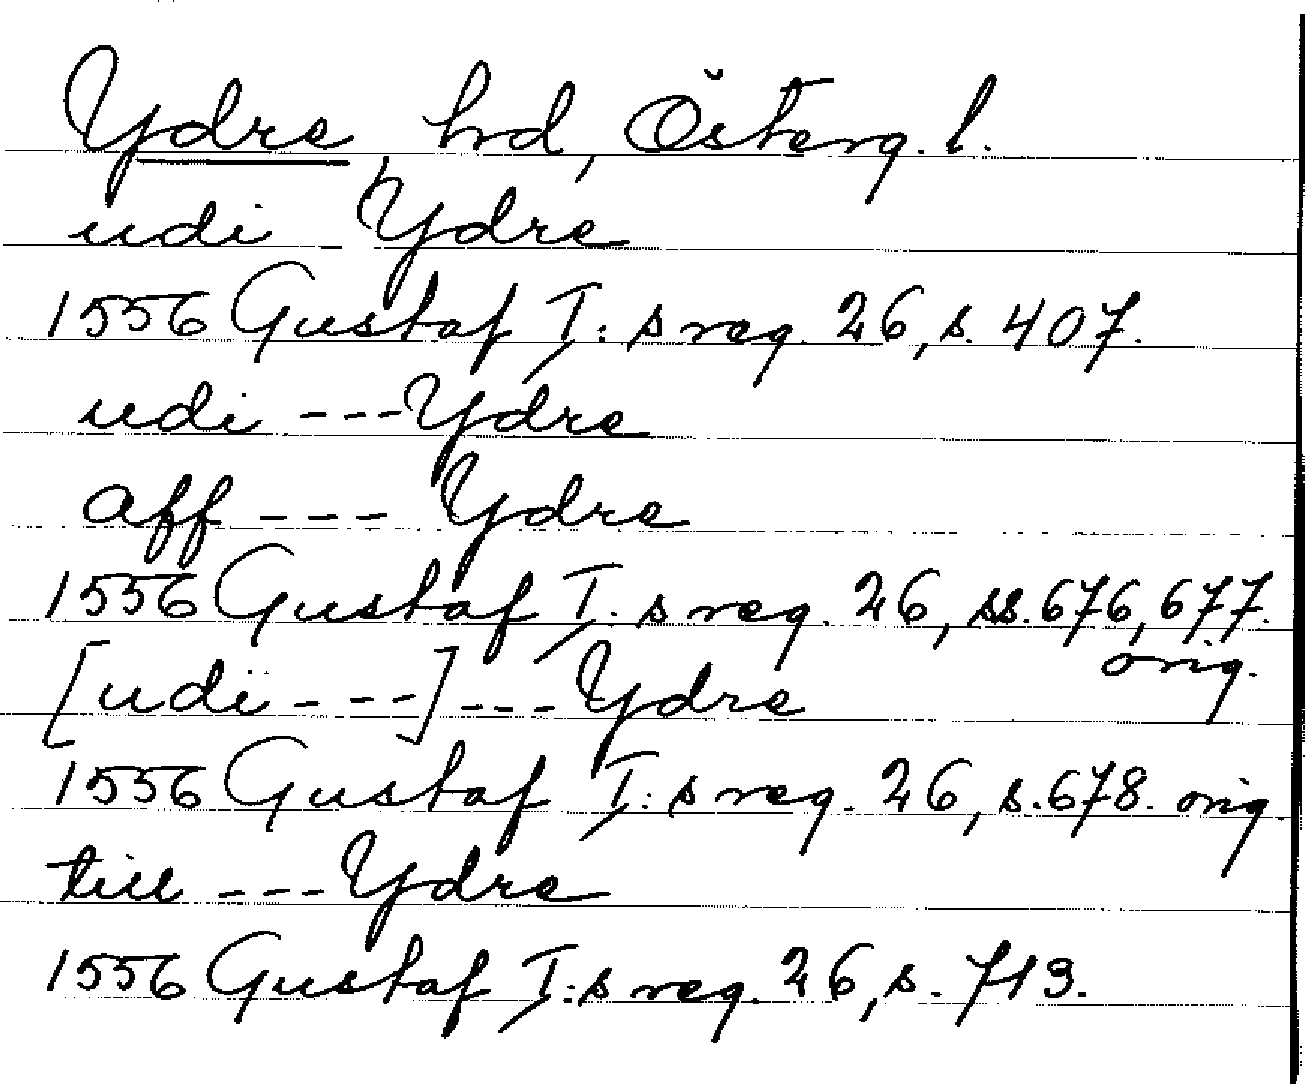 Ydre, hd, Österg. l.
udi Ydre
1556 Gustaf I:s reg. 26, s. 407.
udi --- Ydre
aff --- Ydre
1556 Gustaf I:s reg. 26, ss. 676, 677.
orig.
[udi ---] --- Ydre
1556 Gustaf I:s reg. 26, s. 678. orig.
till --- Ydre
1556 Gustaf I:s reg. 26, s. 713.